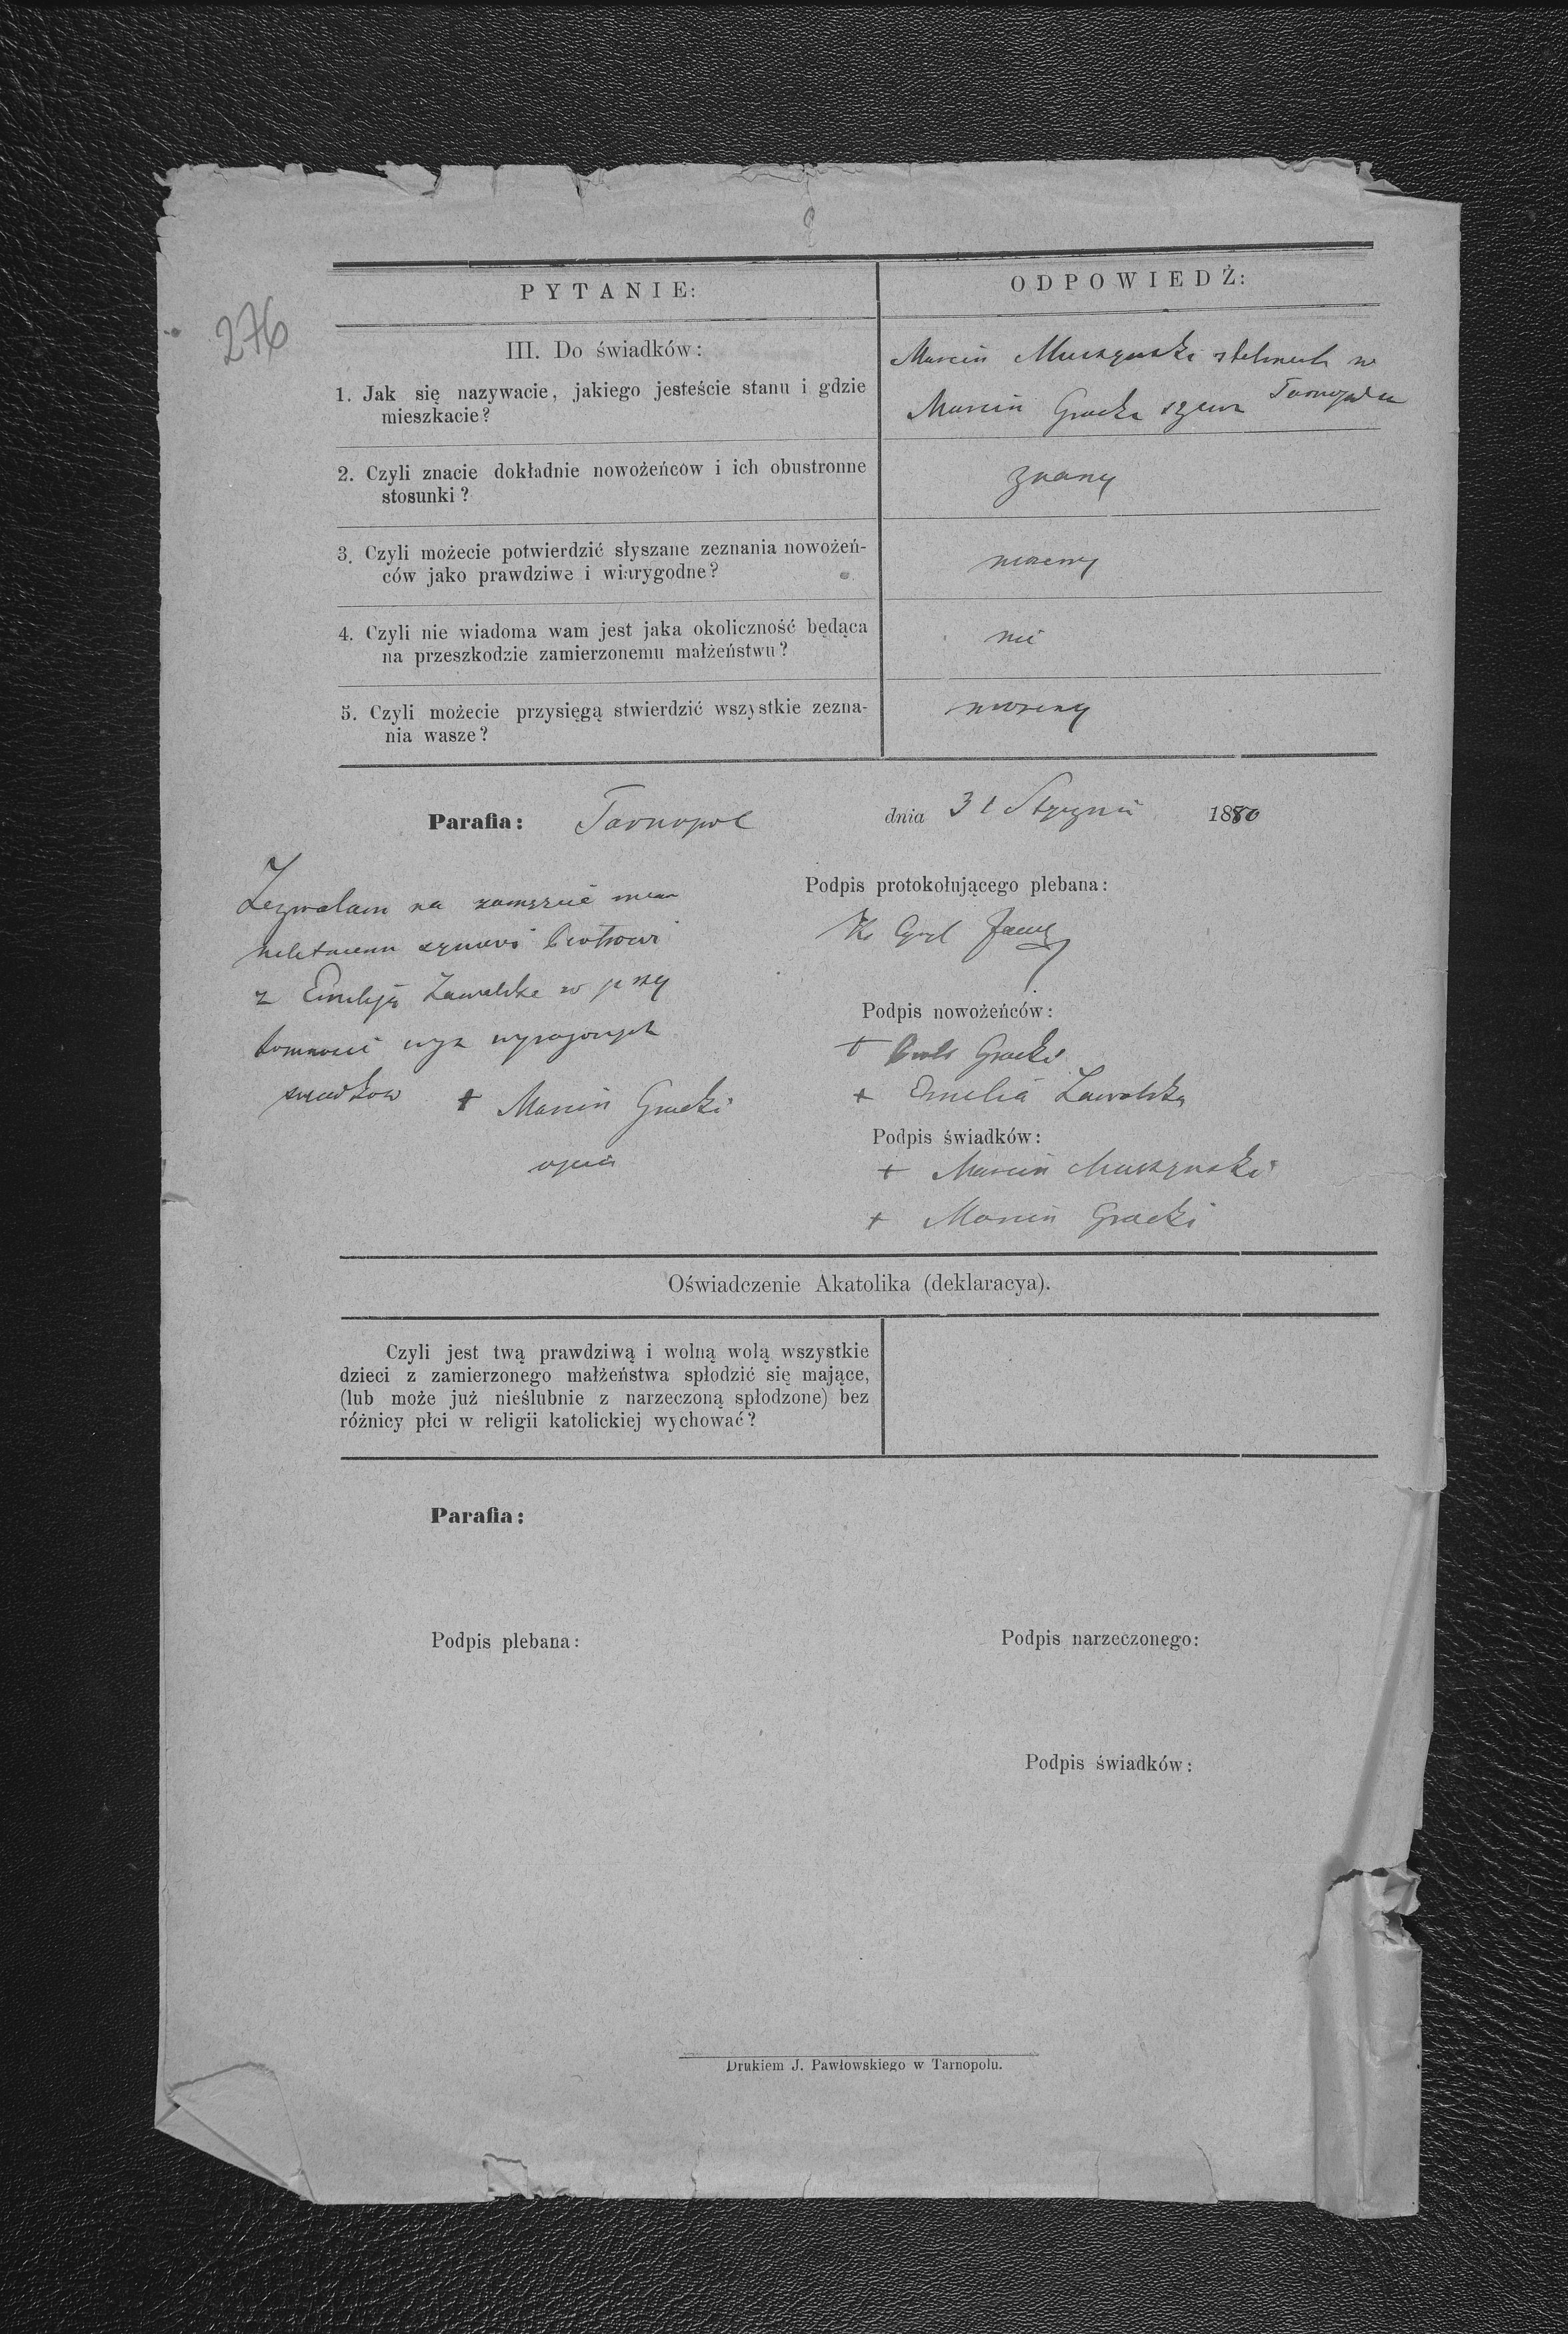 276
PYTANIE:
ODPOWIEDŹ:
III. Do świadków:
1. Jak się nazywacie, jakiego jesteście stanu i gdzie
mieszkacie?
Marcin Muszyński stelmach w
Tarnopolu
Marcin Gracki szewc
2. Czyli znacie dokładnie nowożeńców i ich obustronne
stosunki?
znamy
3. Czyli możecie potwierdzić słyszane zeznania nowożeń-
ców jako prawdziwe i wiarygodne?
możemy
4. Czyli nie wiadoma wam jest jaka okoliczność będąca
na przeszkodzie zamierzonemu małżeństwu?
nie
5. Czyli możecie przysięgą stwierdzić wszystkie zezna-
nia wasze?
możemy
Parafia: Tarnopol
dnia 31 Stycznia 1880
Zezwalam na zawarcie
synowi Piotrowi
z Emilją Zawalską w przy
tomności wyż wyrażonych
swiadkow + Marcin Gracki
ojciec
Podpis protokołującego plebana:
Podpis nowożeńców:
+ Piotr Gracki
+ Emilia Zawalska
Podpis świadków:
+ Marcin Muszyński
+ Marcin Gracki
Oświadczenie Akatolika (deklaracya).
Czyli jest twą prawdziwą i wolną wolą wszystkie
dzieci z zamierzonego małżeństwa spłodzić się mające,
(lub może już nieślubnie z narzeczoną spłodzone) bez
różnicy płci w religii katolickiej wychować?
Parafia:
Podpis plebana:
Podpis narzeczonego:
Podpis świadków:
Drukiem J. Pawłowskiego w Tarnopolu.